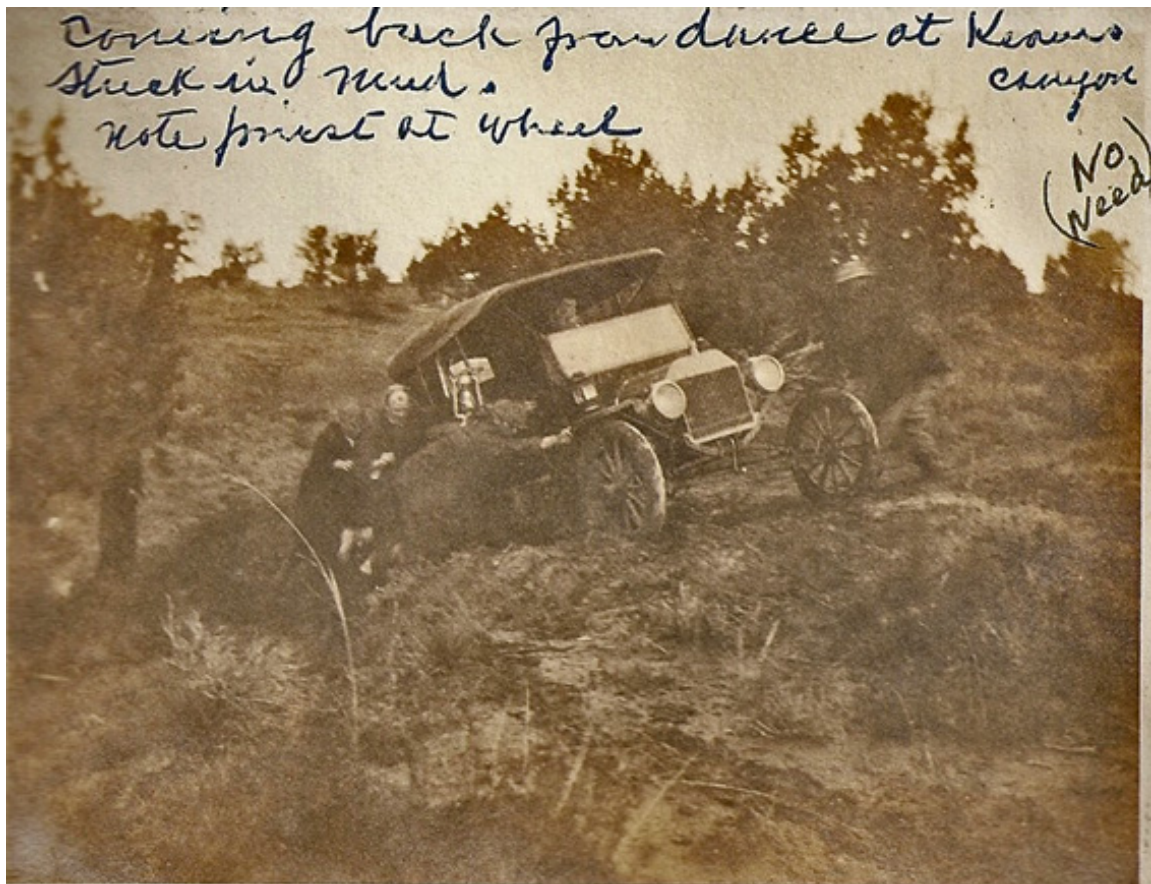 Coming back from dance at Keams
canyon
Stuck in Mud.
note priest at wheel
(NO
Need)